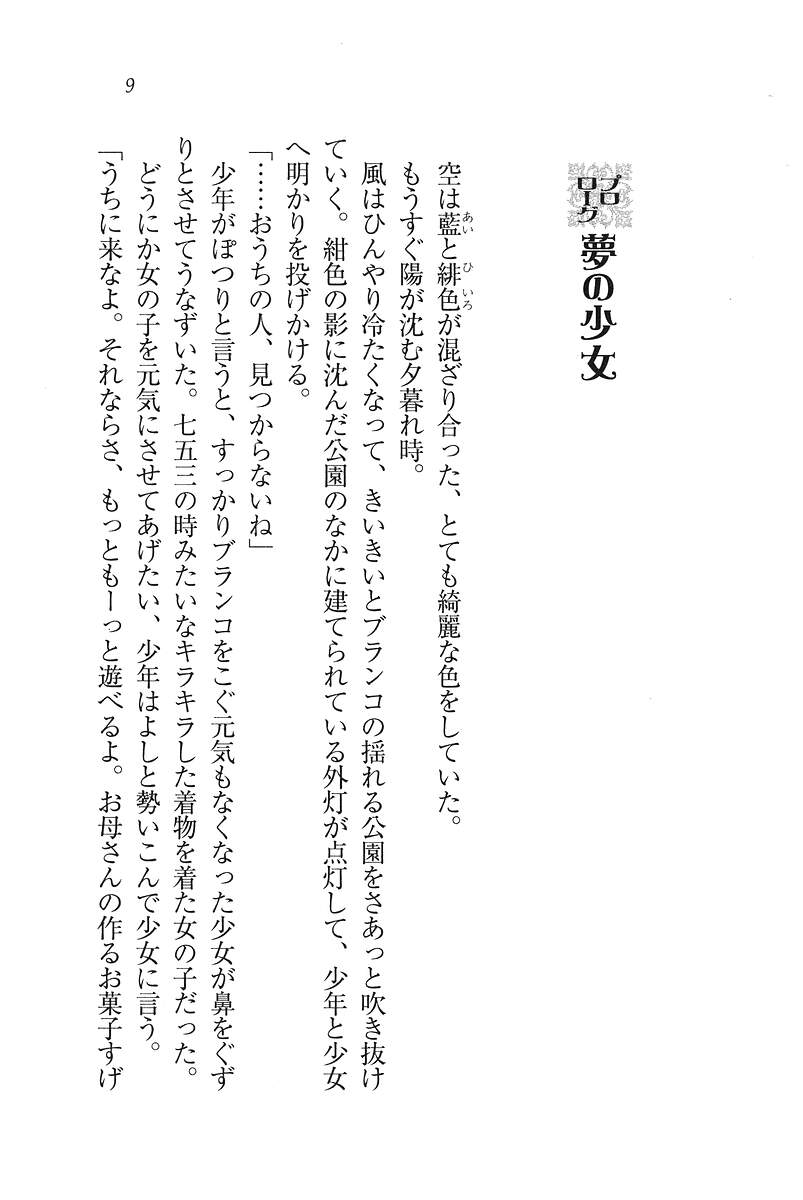 プロローグ
夢の少女
空は藍と緋色が混ざり合った、とても綺麗な色をしていた。
もうすぐ陽が沈む夕暮れ時。
風はひんやり冷たくなって、きいきいとブランコの揺れる公園をさあっと吹き抜け
ていく。紺色の影に沈んだ公園のなかに建てられている外灯が点灯して、少年と少女
へ明かりを投げかける。
「……おうちの人、見つからないね」
少年がぽつりと言うと、すっかりブランコをこぐ元気もなくなった少女が鼻をぐず
りとさせてうなずいた。七五三の時みたいなキラキラした着物を着た女の子だった。
どうにか女の子を元気にさせてあげたい、少年はよしと勢いこんで少女に言う。
「うちに来なよ。それならさ、もっともーっと遊べるよ。お母さんの作るお菓子すげ
9